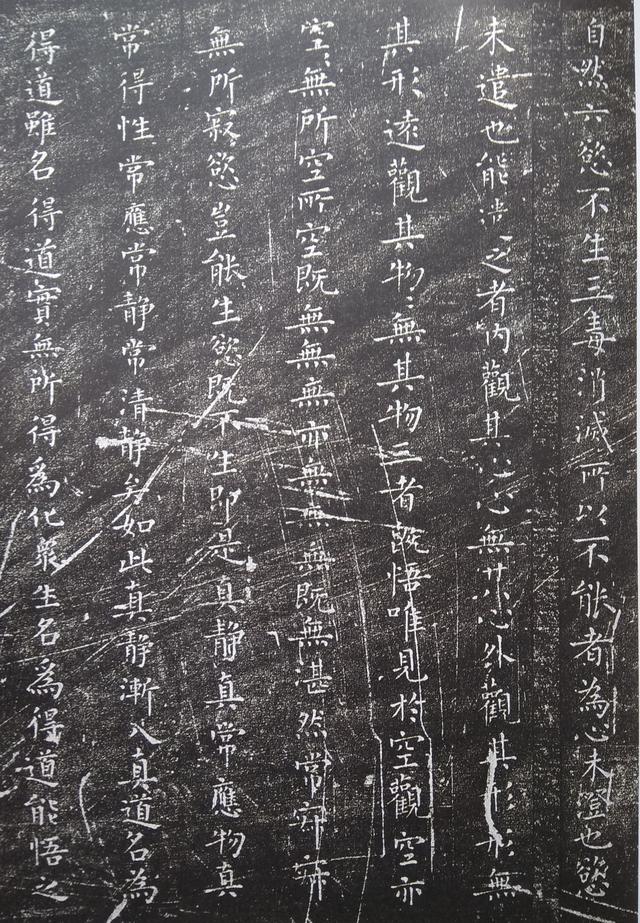 自然六慾不生三毒消滅所以不能者為心未澄也慾
未遣也能遣之者內觀其心心無其心外觀其形形無
其形遠觀其物〻無其物三者既悟唯見於空觀空亦
空〻無所空所空既無無無亦無無無既無湛然常寂寂
無所寂慾豈能生慾既不生即是真靜真常應物真
常得性常應常靜常清靜矣如此真靜漸入真道名為
得道雖名得道實無所得為化眾生名為得道能悟之